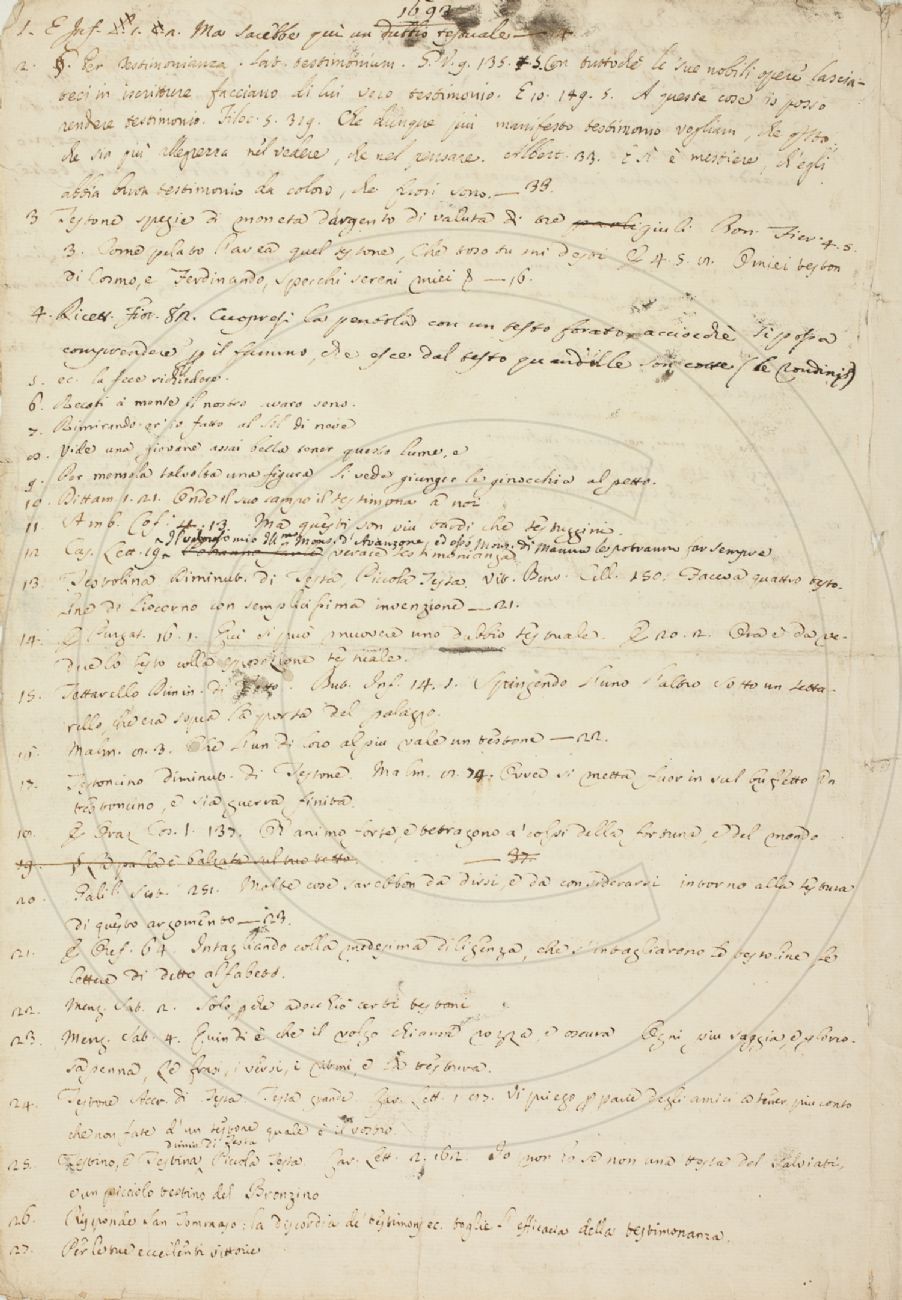 1692
1. E Inf. 2. 1. Ma sarebbe qui un dubbio testuale — 14
2. §. Per Testimonianza. Lat. testimonium. G. V. 9. 135. 5. Con tuttochè le sue nobili opere lascia-
teci in iscritture facciano di lui vero testimonio. E 10. 149. 5. A queste cose io posso
rendere testimonio. Filoc. 5. 319. Che dunque più manifesto testimonio vogliam, che questo,
che sia più allegrezza nel vedere, che nel pensare. Albert. 33. E sì è mestiere, ch'egli
abbia buon testimonio da coloro, che fuori sono. — 38.
3 Testone spezie di moneta d'argento di valuta di tre paoli giuli Bon. Fier. 4. 5.
3. Come pelato l'avea quel testone, Che toso tu mi desti E 4. 5. O miei teston
di Cosmo, e Ferdinando, specchi sereni miei — 16.
4. Ricett. Fior. 82. Cuopresi la pentola con un testo forato, acciocchè si possa
comprendere per il fummo, che esce dal testo quand'elle son cotte (le rondini)
5. ec. la fece richiedere.
6. Recati a monte il nostro avaro seno.
7. Rimirando er'io fatto al Sol di neve
8. Vide una giovane assai bella tener questo lume, e
9. Per mensola talvolta una figura Si vede giunger le ginocchia al petto.
10. Dittam. 1. 21. Onde il suo campo il testimona a noi
11. Amb. Cof. 4. 13. Ma questi son più tardi che testuggini.
Il valoroso mio Ill.mo Mons. d'Avanzone, ed esso Mons. di Manna le potranno far sempre
12. Cas. Lett. 19. verace testimonianza
13. Testolina Diminut. di Testa, Piccola Testa. Vit. Benv. Cell. 150. Faceva quattro testo-
line di Liocorno con semplicissima invenzione — 21.
14. E Purgat. 16. 1. Qui si può muovere uno dubbio testuale. E 20. 2. Ora è da ve-
dere lo testo colla esposizione testuale.
15. Tettarello Dimin. di Tetto. But. Inf. 14. 1. Spingendo l'uno l'altro sotto un tetta-
rello che era sopra la porta del palazzo.
16. Malm. 3. Che l'un di loro al più vale un testone — 22.
17. Testoncino diminut. di Testone. Malm. 74. Ovver si metta fuor in sul buffetto Un
testoncino, e sia guerra finita.
18. E Oraz. Cos. 1. 137. D'animo forte, e tetragono a' colpi della fortuna, e del mondo
19. La palla è balzata sul tuo tetto. — 37.
20. Fabil. Sist. 251. Molte cose sarebbon da dirsi, e da considerarsi intorno alla testura
di questo argomento — 23.
21. E Oref. 64. Intagliando colla medesima diligenza, che s'intagliarono le testoline le
lettere di detto alfabeto.
22. Menz. Sat. 2. Solo perchè adocchiò certi testoni
23. Menz. Sat. 4. Quindi è che il volgo chiama rozza, e oscura Ogni più saggia, e glorio-
sa penna, Le frasi, i versi, i ritmi, e la testura.
24. Testone Accr. di Testa. Testa grande. Lett. 1. Vi priego per parte degli amici a tener più conto
che non fate d'un testone quale è il vostro.
dimin. di Testa
25. Testino, e Testina Piccola Testa. Lett. 2. 162. Io per io se non una testa del Salviati,
e un picciolo testino del Bronzino
26. Risponde San Tommaso: la discordia de' testimonj ec. toglie l'efficacia della testimonanza.
27. Per le tue eccellenti vittorie